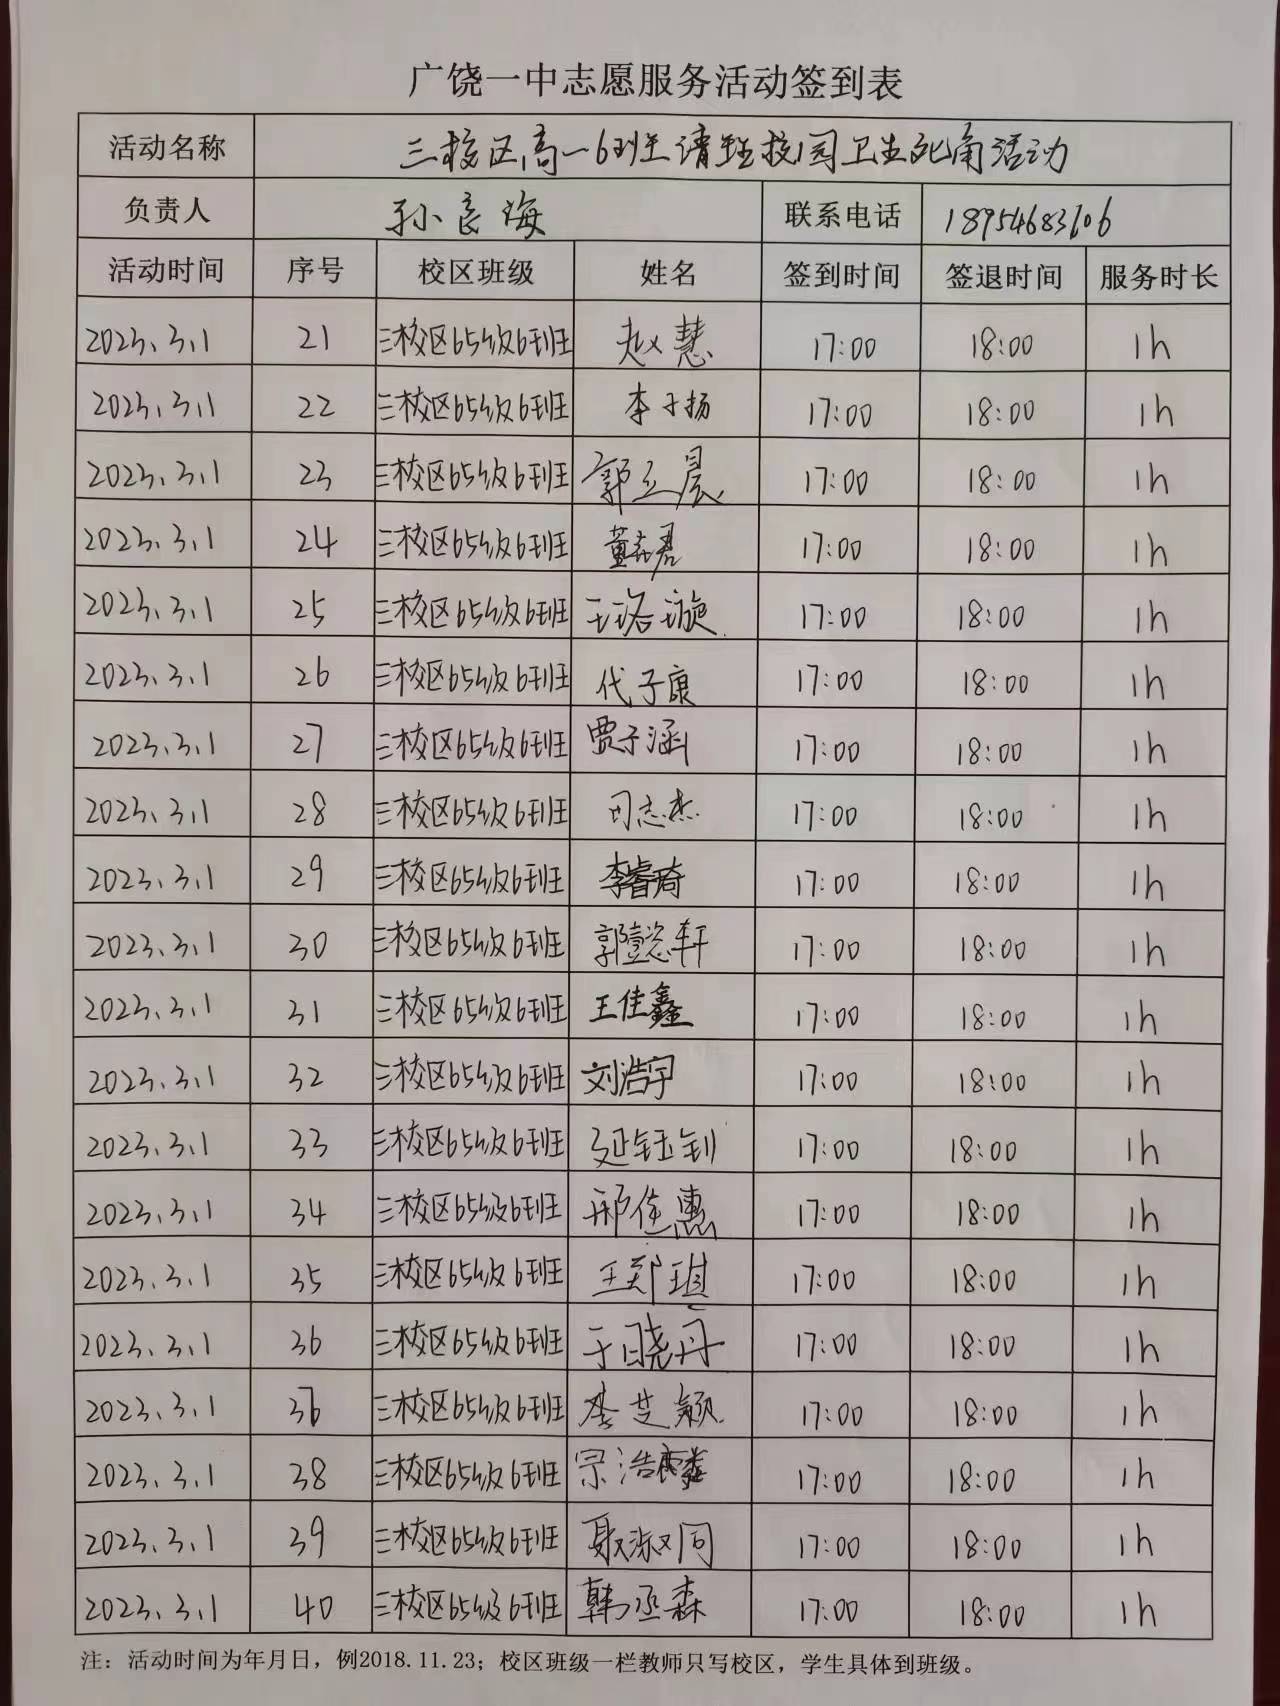 广饶一中志愿服务活动签到表
活动名称 三校区高一6班清理校园卫生死角活动
负责人 孙良海 联系电话 18954683606
活动时间 序号 校区班级 姓名 签到时间 签退时间 服务时长
2023.3.1 21 三校区65级6班 赵慧 17:00 18:00 1h
2023.3.1 22 三校区65级6班 李子扬 17:00 18:00 1h
2023.3.1 23 三校区65级6班 郭立晨 17:00 18:00 1h
2023.3.1 24 三校区65级6班 17:00 18:00 1h
2023.3.1 25 三校区65级6班 王珞璇 17:00 18:00 1h
2023.3.1 26 三校区65级6班 代子康 17:00 18:00 1h
2023.3.1 27 三校区65级6班 贾子涵 17:00 18:00 1h
2023.3.1 28 三校区65级6班 司志杰 17:00 18:00 1h
2023.3.1 29 三校区65级6班 李睿琦 17:00 18:00 1h
2023.3.1 30 三校区65级6班 郭懿轩 17:00 18:00 1h
2023.3.1 31 三校区65级6班 王佳鑫 17:00 18:00 1h
2023.3.1 32 三校区65级6班 刘浩宇 17:00 18:00 1h
2023.3.1 33 三校区65级6班 延钰钊 17:00 18:00 1h
2023.3.1 34 三校区65级6班 邢佳惠 17:00 18:00 1h
2023.3.1 35 三校区65级6班 王郑琪 17:00 18:00 1h
2023.3.1 36 三校区65级6班 于晓丹 17:00 18:00 1h
2023.3.1 37 三校区65级6班 李芝颖 17:00 18:00 1h
2023.3.1 38 三校区65级6班 17:00 18:00 1h
2023.3.1 39 三校区65级6班 聂淑同 17:00 18:00 1h
2023.3.1 40 三校区65级6班 韩丞森 17:00 18:00 1h
注：活动时间为年月日，例2018.11.23；校区班级一栏教师只写校区，学生具体到班级。